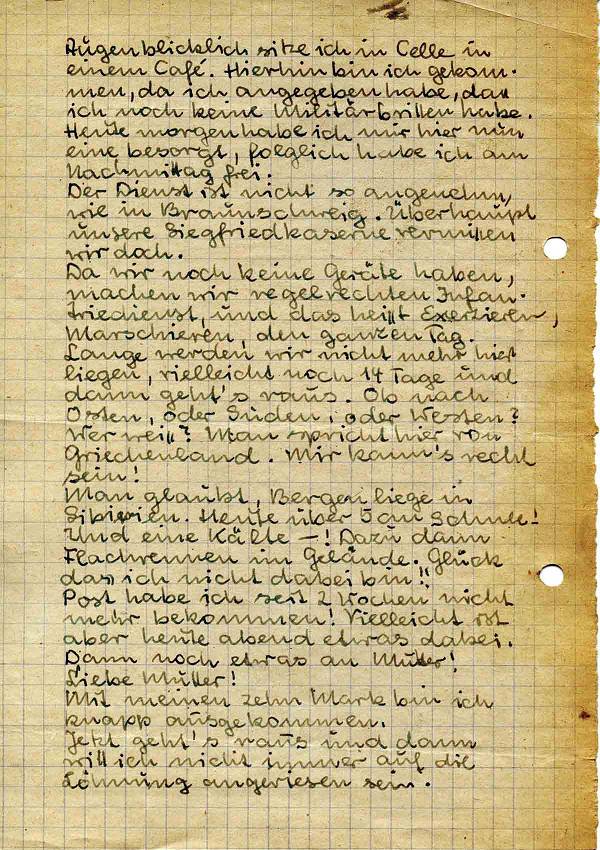 Augenblicklich sitze ich in Celle in
einem Café. Hierhin bin ich gekom-
men, da ich angegeben habe, daß
ich noch keine Militärbrillen habe.
Heute morgen habe ich mir hier nun
eine besorgt, folglich habe ich am
Nachmittag frei.
Der Dienst ist nicht so angenehm,
wie in Braunschweig. Überhaupt
unsere Siegfriedkaserne vermissen
wir doch.
Da wir noch keine Geräte haben,
machen wir regelrechten Infan-
triedienst, und das heißt Exerzieren,
Marschieren, den ganzen Tag.
Lange werden wir nicht mehr hier
liegen, vielleicht noch 14 Tage und
dann geht's raus. Ob nach
Osten, oder Süden, oder Westen?
Wer weiß? Man spricht hier von
Griechenland. Mir kann's recht
sein!
Man glaubt, Bergen liege in
Sibirien. Heute über 5 cm Schnee!
Und eine Kälte —! Dazu dann
Flachrennen im Gelände. Glück
das ich nicht dabei bin!!
Post habe ich seit 2 Wochen nicht
mehr bekommen! Vielleicht ist
aber heute abend etwas dabei.
Dann noch etwas an Mutter!
Liebe Mutter!
Mit meinen zehn Mark bin ich
knapp ausgekommen.
Jetzt geht's raus und dann
will ich nicht immer auf die
Löhnung angewiesen sein.